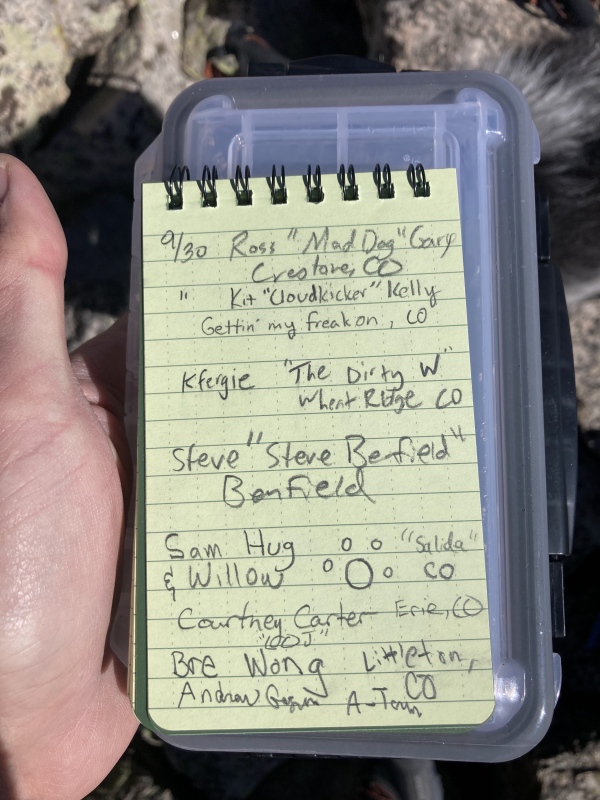 9/30 Ross "Mad Dog" Gary
Crestone, CO
" Kit "Cloudkicker" Kelly
Gettin' my freak on, CO
Kfergie "The Dirty W"
Wheat Ridge CO
Steve "Steve Benfield"
Benfield
Sam Hug "Salida"
& Willow CO
Courtney Carter Erie, CO
Bre Wong Littleton,
CO
Andrew A-Town